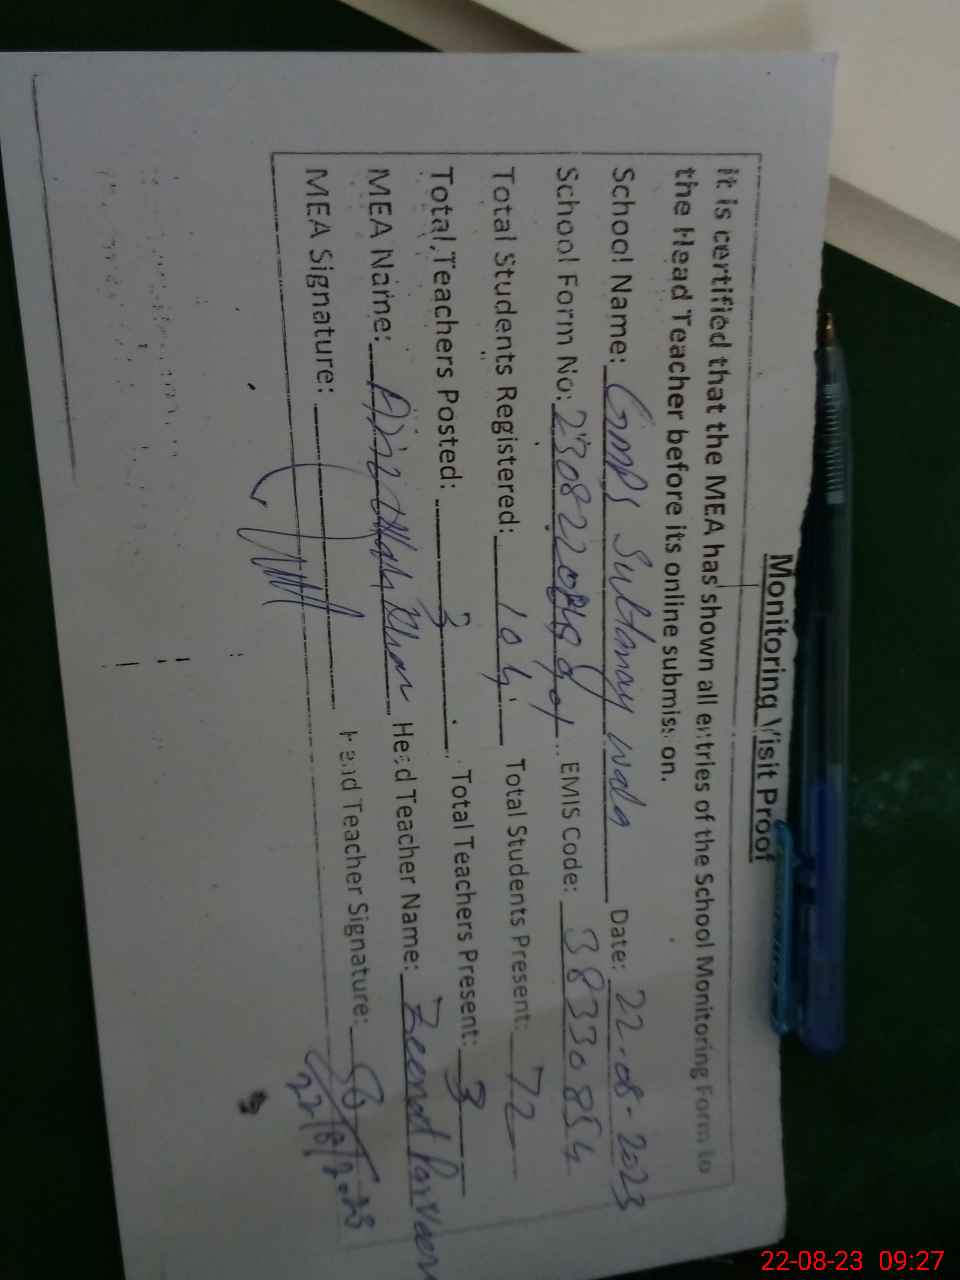 Monitoring Visit Proof
It is certified that the MEA has shown all entries of the School Monitoring Form to
the Head Teacher before its online submission.
School Name: GMPS Sultanay wala Date: 22-08-2023
School Form No: EMIS Code: 38330854
Total Students Registered: 104 Total Students Present: 72
Total Teachers Posted: 3 Total Teachers Present: 3
MEA Name: Aziz Ullah Khan Head Teacher Name: Zeenat Parveen
MEA Signature: Head Teacher Signature:
22/8/2023
22-08-23 09:27